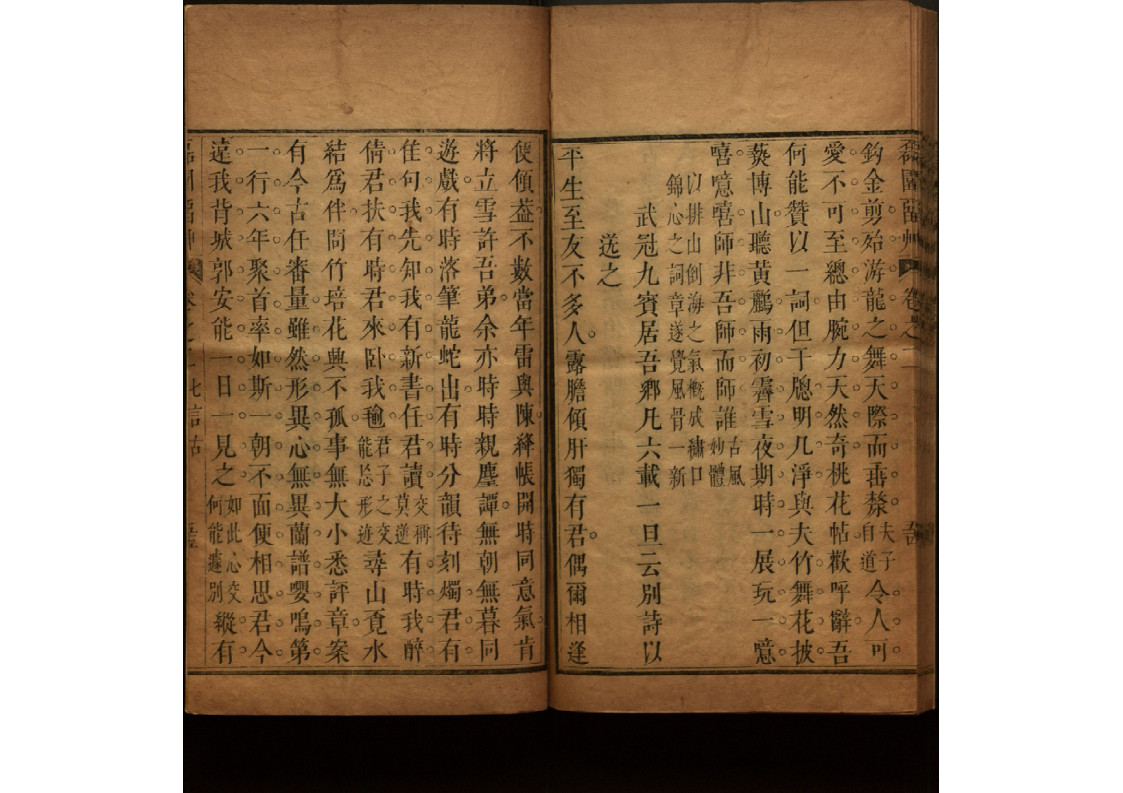 鈎金剪殆游龍之舞天際而垂漦夫子自道令人可
愛不可至總由腕力天然奇桃花帖歡呼辭吾
何能贊以一詞但于牕明几淨與夫竹舞花披
爇博山聽黃鸝雨初霽雪夜期時一展玩一噫
嘻噫嘻師非吾師而師誰古風妙體
以排山倒海之氣概成繡口
錦心之詞章遂覺風骨一新
武冠九賓居吾鄉凡六載一旦云別詩以
送之
平生至友不多人露膽傾肝獨有君偶爾相逢
便傾葢不數當年雷與陳絳帳開時同意氣肯
將立雪許吾弟余亦時時親麈譚無朝無暮同
遊戲有時落筆龍蛇出有時分韻待刻燭君有
佳句我先知我有新書任君讀交稱莫逆有時我醉
倩君扶有時君來臥我毺君子之交能忘形迹尋山覓水
結爲伴問竹培花興不孤事無大小悉評章案
有今古任審量雖然形異心無異蘭譜嚶鳴第
一行六年聚首率如斯一朝不面便相思君今
違我背城郭安能一日一見之如此心交何能遽別縱有